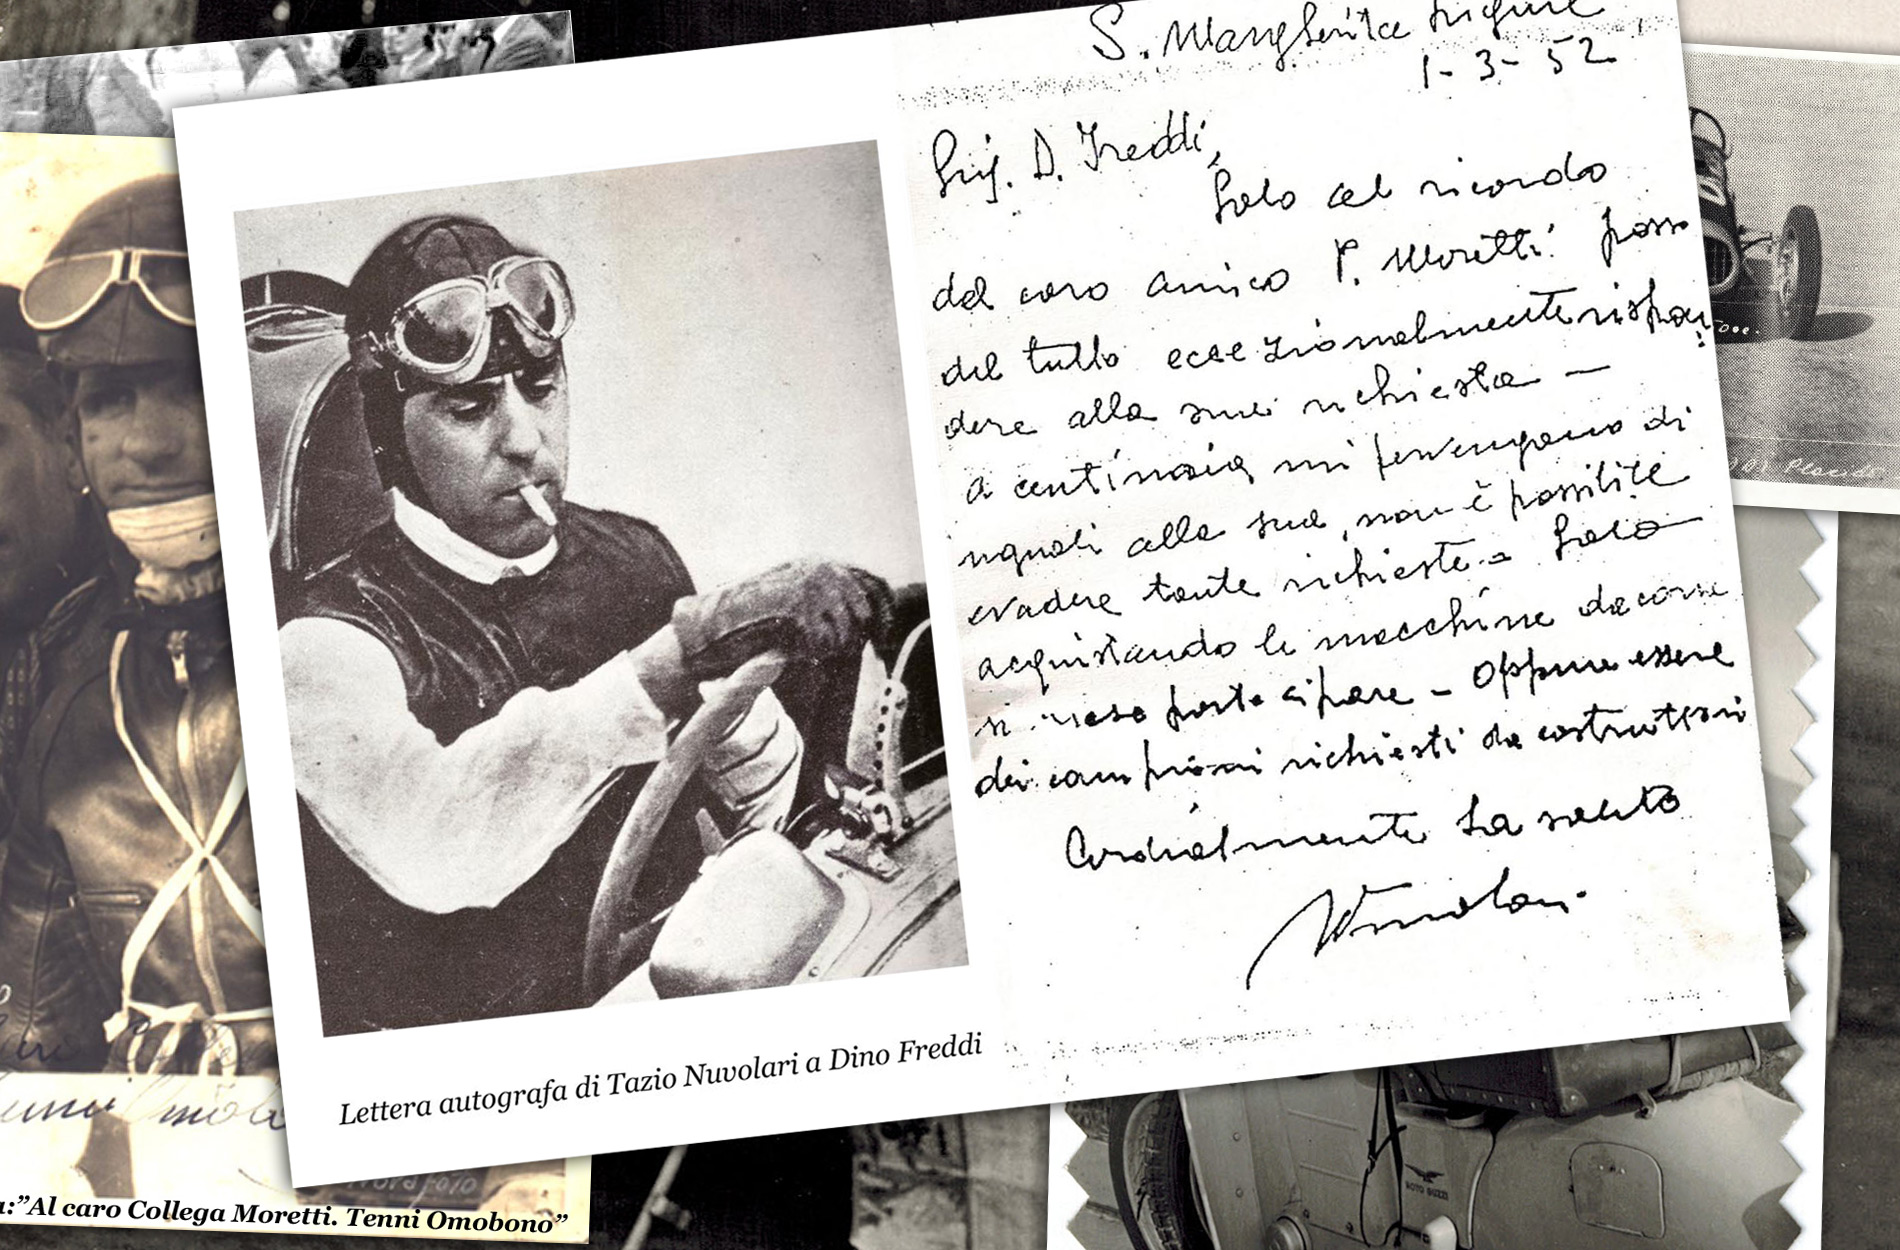 S. Margherita Ligure
1-3-52
Sig. D. Freddi,
Solo al ricordo
del caro amico P. Moretti posso
del tutto eccezionalmente rispon
dere alla sua richiesta —
a centinaia mi pervengano di
uguali alla sua, non è possibile
evadere tante richieste - Solo
acquistando le macchine da corse
si partecipare - Oppure essere
dei campioni richiesti da costruttori
Cordialmente La saluto
Nuvolari
Lettera autografa di Tazio Nuvolari a Dino Freddi
a:”Al caro Collega Moretti. Tenni Omobono”
MOTO GUZZI